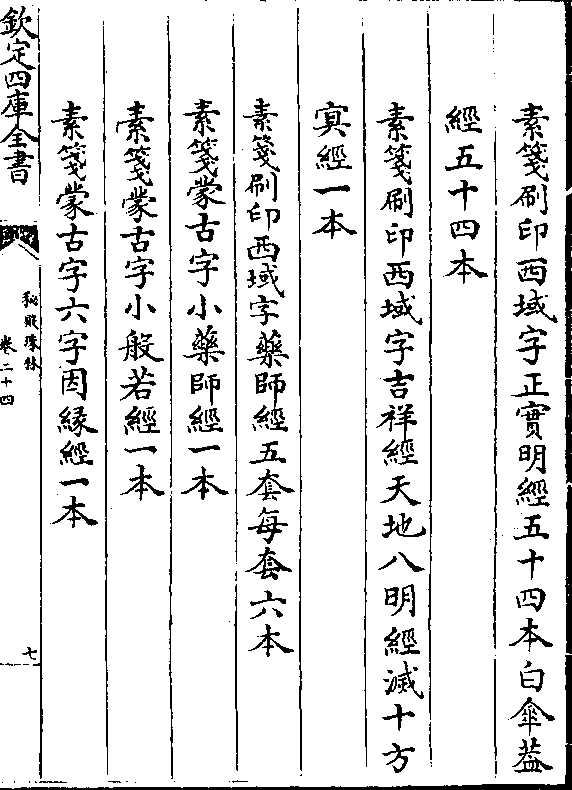 素箋刷印西域字正實明經五十四本白傘葢
經五十四本
素箋刷印西域字吉祥經天地八明經滅十方
冥經一本
素箋刷印西域字藥師經五套每套六本
素箋蒙古字小藥師經一本
素箋蒙古字小般若經一本
素箋蒙古字六字因緣經一本
欽定四庫全書
秘殿珠林
卷二十四
七